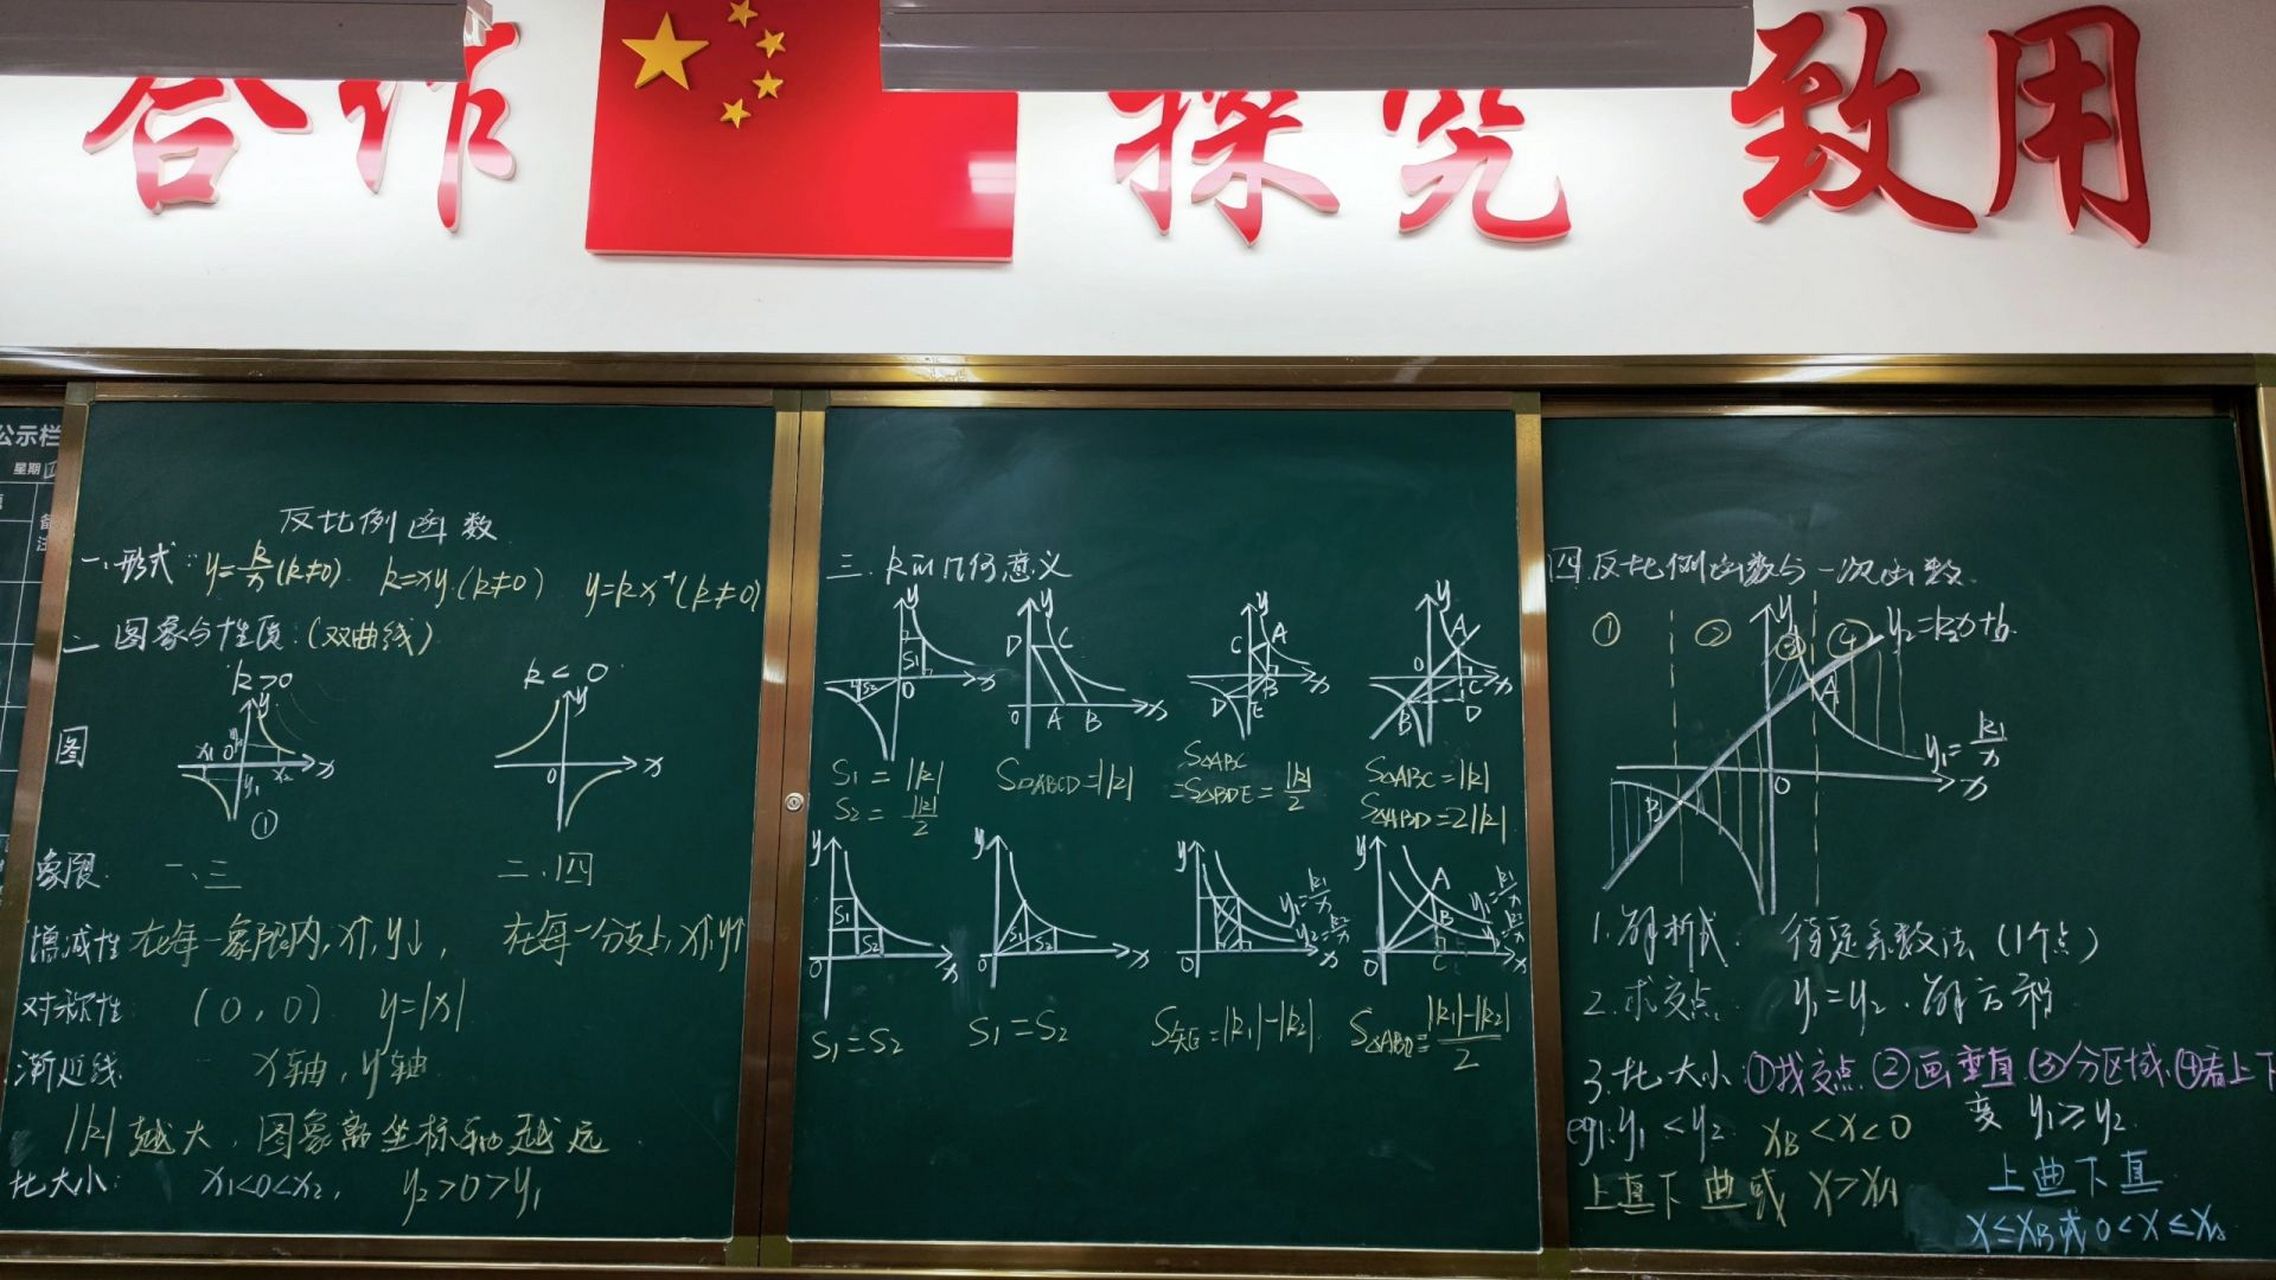 合作 探究 致用
公示栏
星期
备注
反比例函数
一、形式: y=k/x (k≠0) k=xy.(k≠0) y=kx⁻¹(k≠0)
二 图象与性质:(双曲线)
k>0 k<0
图
y y
x₁ 0 x₂ x 0 x
y₁
①
象限: 一、三 二、四
增减性 在每一象限内,x↑,y↓, 在每一分支上,x↑,y↑
对称性 (0,0) y=|x|
渐近线 x轴,y轴
|k|越大,图象离坐标轴越远
比大小: x₁<0<x₂, y₂>0>y₁
三.k的几何意义
y S₁ S₂ 0 x
y D C 0 A B x
y C A B D E x
y A 0 C B D x
S₁=|k|
S₂=|k|/2
S▱ABCD=|k|
S△ABC
=S△BDE=|k|/2
S△ABC=|k|
S△ABD=2|k|
y S₁ S₂ 0 x
y S₁ S₂ 0 x
y 0 x y₁=k₁/x y₂=k₂/x
y A B C 0 x y₁=k₁/x y₂=k₂/x
S₁=S₂
S₁=S₂
S矩=|k₁|-|k₂|
=|k₁|-|k₂|/2
四.反比例函数与一次函数
① ② ③ ④
y y₂=k₂x+b
A
y₁=k₁/x
B 0 x
1.解析式: 待定系数法(1个点)
2.求交点: y₁=y₂.解方程
3.比大小:①找交点②画垂直③分区域④看上下
eg1:y₁<y₂ x_B<x<0
上直下曲或 x>x_A
变 y₁≥y₂
上曲下直
x≤x_B或0<x≤x_A